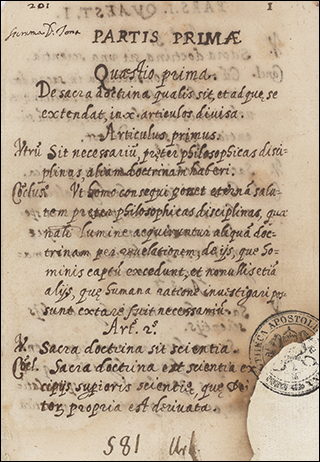 201 1
Summa D. Tomæ
PARTIS PRIMÆ
Quæstio prima.
De sacra doctrina qualis sit, et ad que se
extendat, in x. articulos divisa.
Articulus primus.
Vtrũ Sit necessariũ, præter philosophicas disci-
plinas aliam doctrinam haberi.
Cõclus. Vt homo consequi posset eternã salu-
tem preter philosophicas disciplinas, quæ
lumine acquiruntur aliquã doc-
trinam per revelationem, de ijs, que ho-
minis captũ excedunt, et nonullis etiã
alijs, que humana ratione investigari pos-
sunt extare fuit necessariũ.
Art. 2.
V. Sacra doctrina sit scientia.
Cõcl. Sacra doctrina est scientia ex
scientie, que
propria est derivata.
THECA APOSTOLI
581